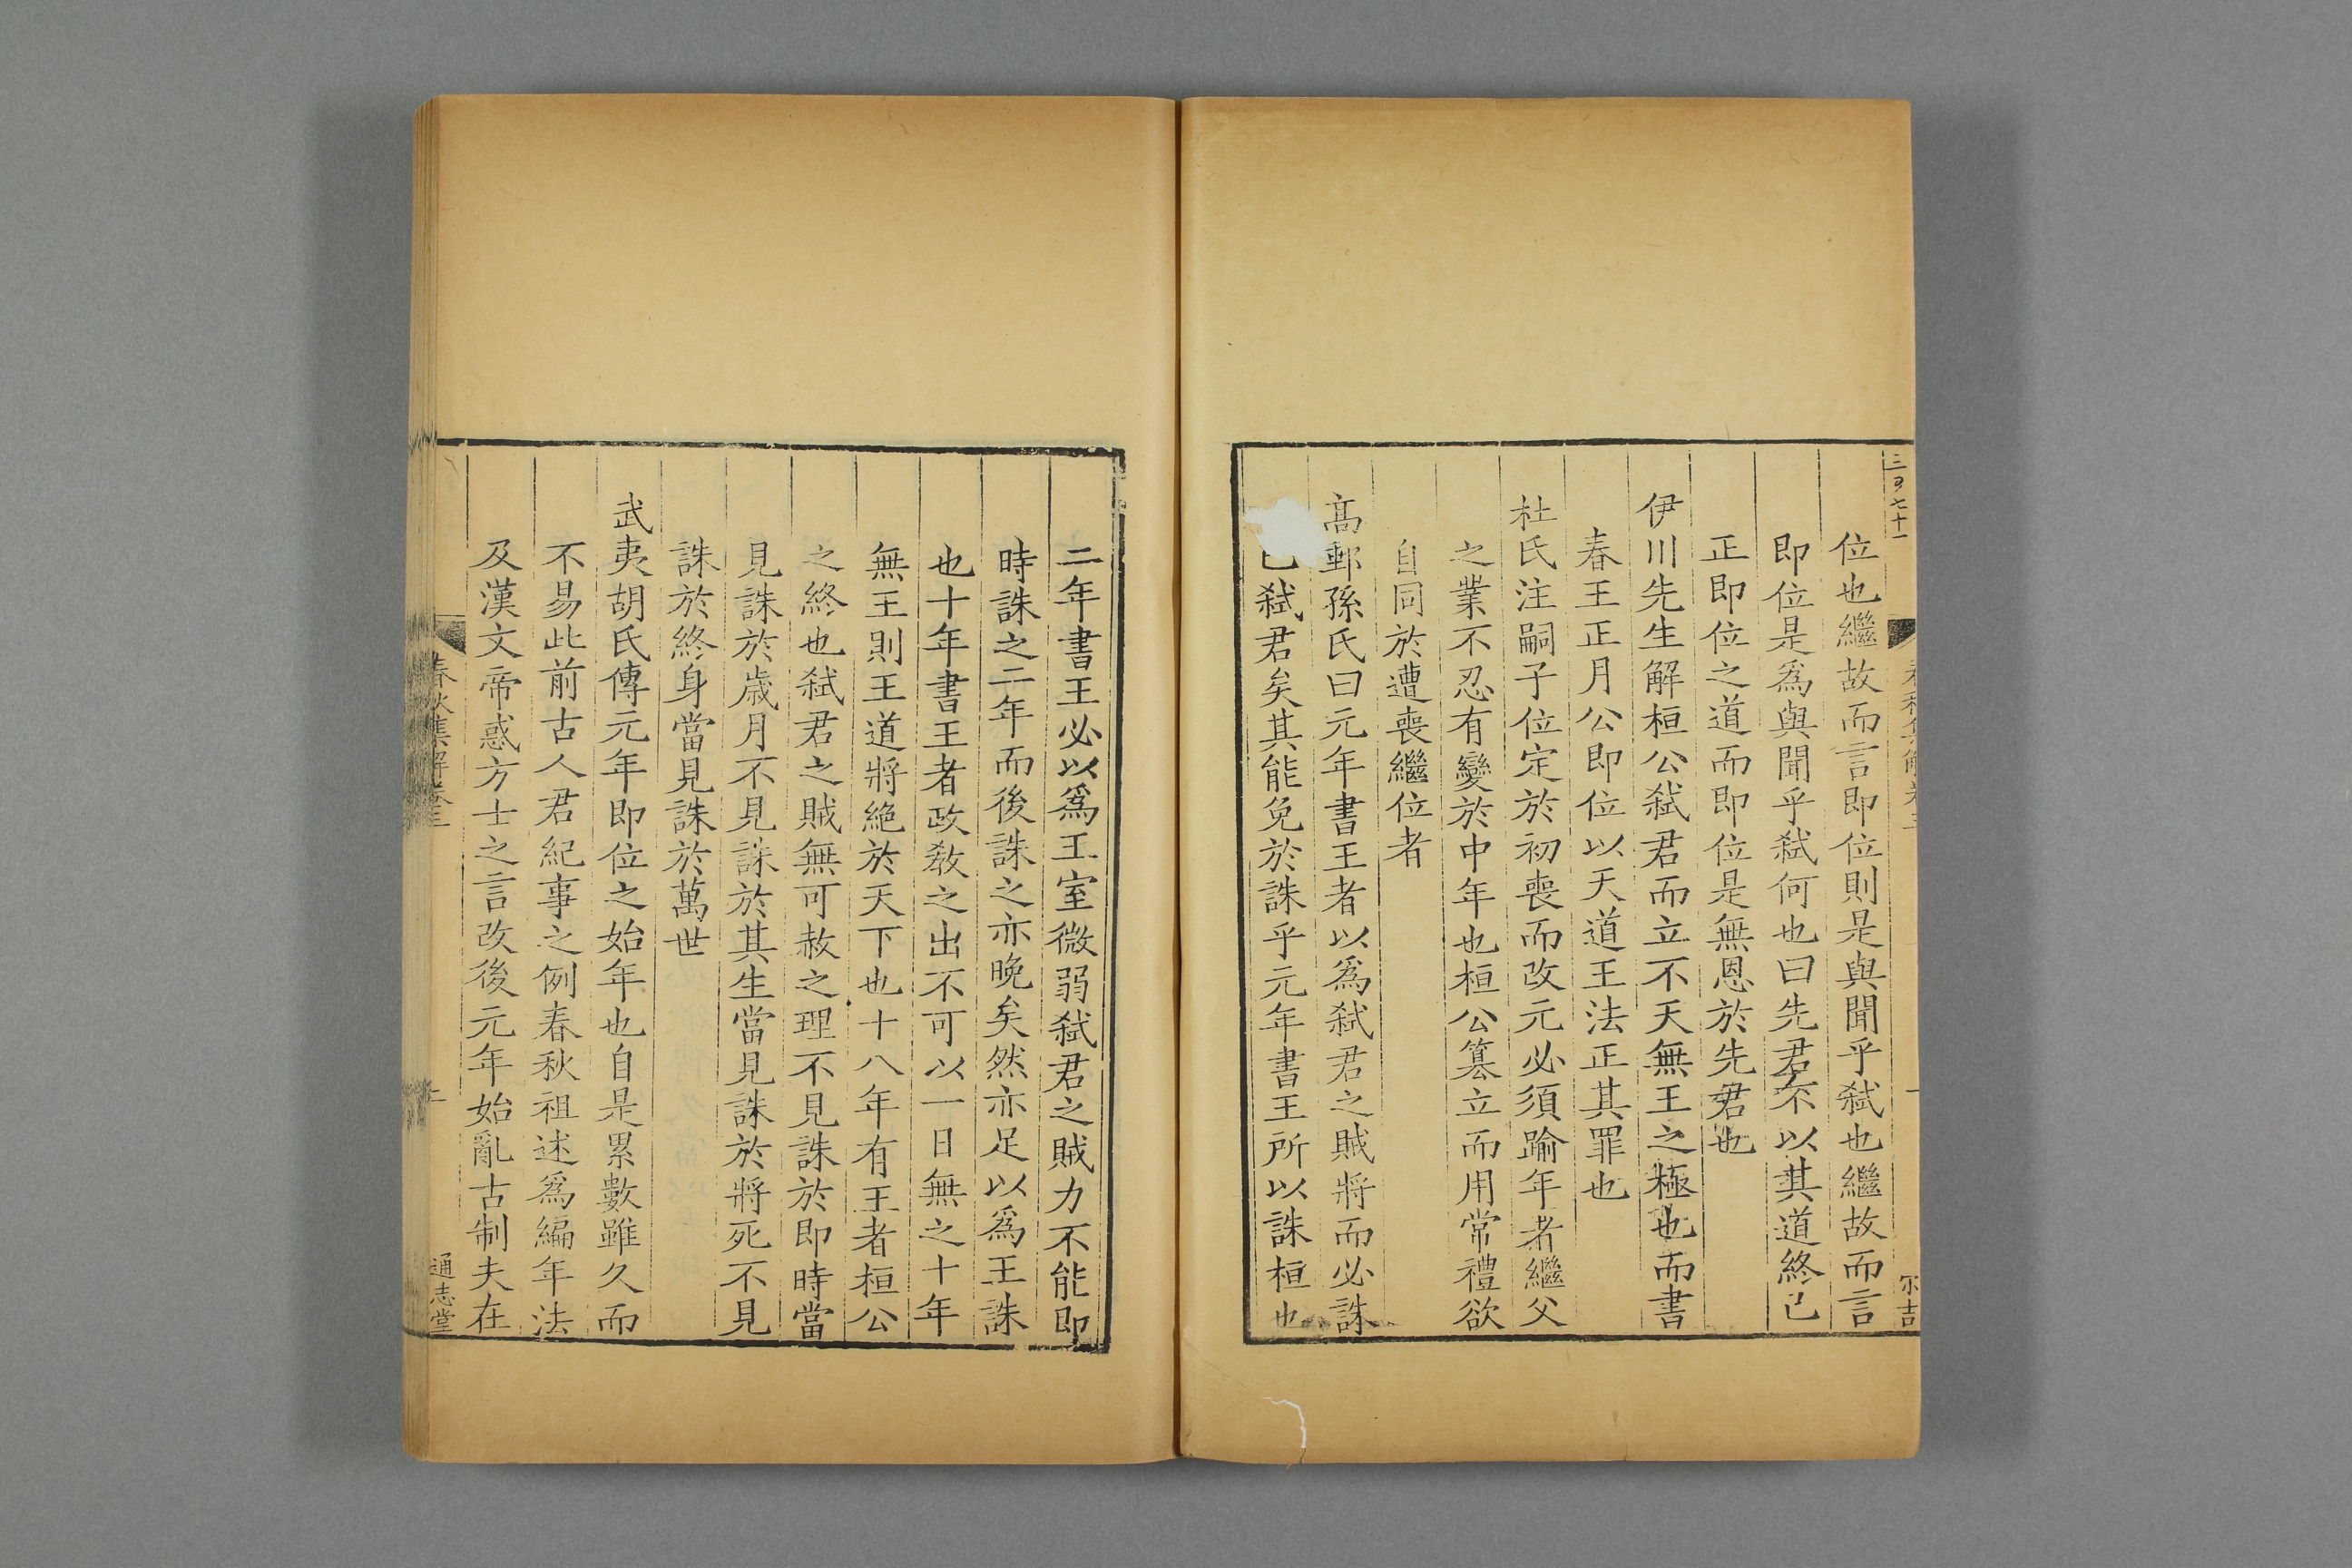 三百七十一
春秋集解卷三
一
尒吉
位也繼故而言即位則是與聞乎弑也繼故而言
即位是爲與聞乎弑何也曰先君不以其道終已
正即位之道而即位是無恩於先君也
伊川先生解桓公弑君而立不天無王之極也而書
春王正月公即位以天道王法正其罪也
杜氏注嗣子位定於初喪而改元必須踰年者繼父
之業不忍有變於中年也桓公簒立而用常禮欲
自同於遭喪繼位者
高郵孫氏曰元年書王者以爲弑君之賊將而必誅
已弑君矣其能免於誅乎元年書王所以誅桓也
二年書王必以爲王室微弱弑君之賊力不能即
時誅之二年而後誅之亦晚矣然亦足以爲王誅
也十年書王者政教之出不可以一日無之十年
無王則王道將絶於天下也十八年有王者桓公
之終也弑君之賊無可赦之理不見誅於即時當
見誅於歳月不見誅於其生當見誅於將死不見
誅於終身當見誅於萬世
武夷胡氏傳元年即位之始年也自是累數雖久而
不易此前古人君紀事之例春秋祖述爲編年法
及漢文帝惑方士之言改後元年始亂古制夫在
春秋集解卷三
通志堂